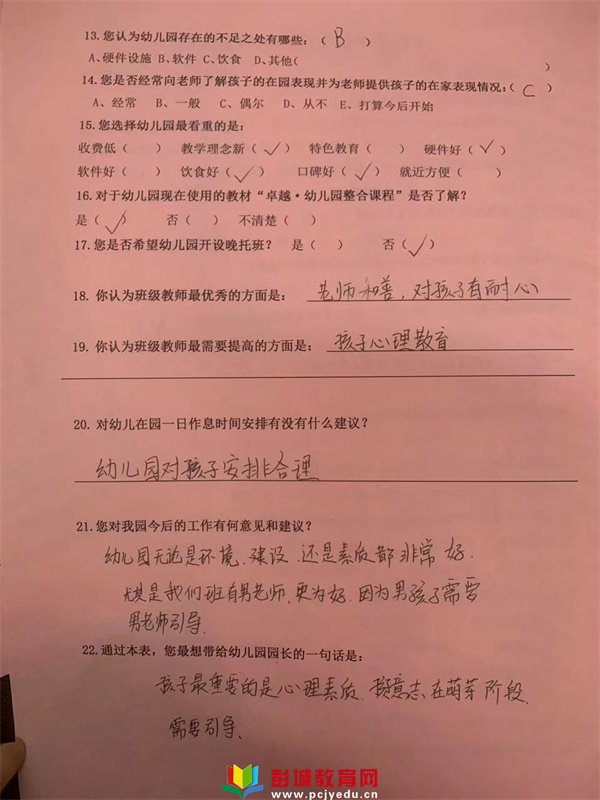 13.您认为幼儿园存在的不足之处有哪些：（ B ）
A、硬件设施 B、软件 C、饮食 D、其他（ ）
14.您是否经常向老师了解孩子的在园表现并为老师提供孩子的在家表现情况：（ C ）
A、经常 B、一般 C、偶尔 D、从不 E、打算今后开始
15.您选择幼儿园最看重的是：
收费低（ ） 教学理念新（ ✓ ） 特色教育（ ） 硬件好（ ✓ ）
软件好（ ） 饮食好（ ✓ ） 口碑好（ ✓ ） 就近方便（ ）
16.对于幼儿园现在使用的教材“卓越·幼儿园整合课程”是否了解？
是（ ✓ ） 否（ ） 不清楚（ ）
17.您是否希望幼儿园开设晚托班？ 是（ ） 否（ ✓ ）
18. 你认为班级教师最优秀的方面是： 老师和善，对孩子有耐心
19. 你认为班级教师最需要提高的方面是： 孩子心理教育
20. 对幼儿在园一日作息时间安排有没有什么建议？
幼儿园对孩子安排合理
21.您对我园今后的工作有何意见和建议？
幼儿园无论是环境、建设、还是素质都非常好．
尤其是我们班有男老师，更为好．因为男孩子需要
男老师引导．
22.通过本表，您最想带给幼儿园园长的一句话是：
孩子最重要的是心理素质．意志在萌芽阶段．
需要引导．
彭城教育网
www.pcjyedu.cn